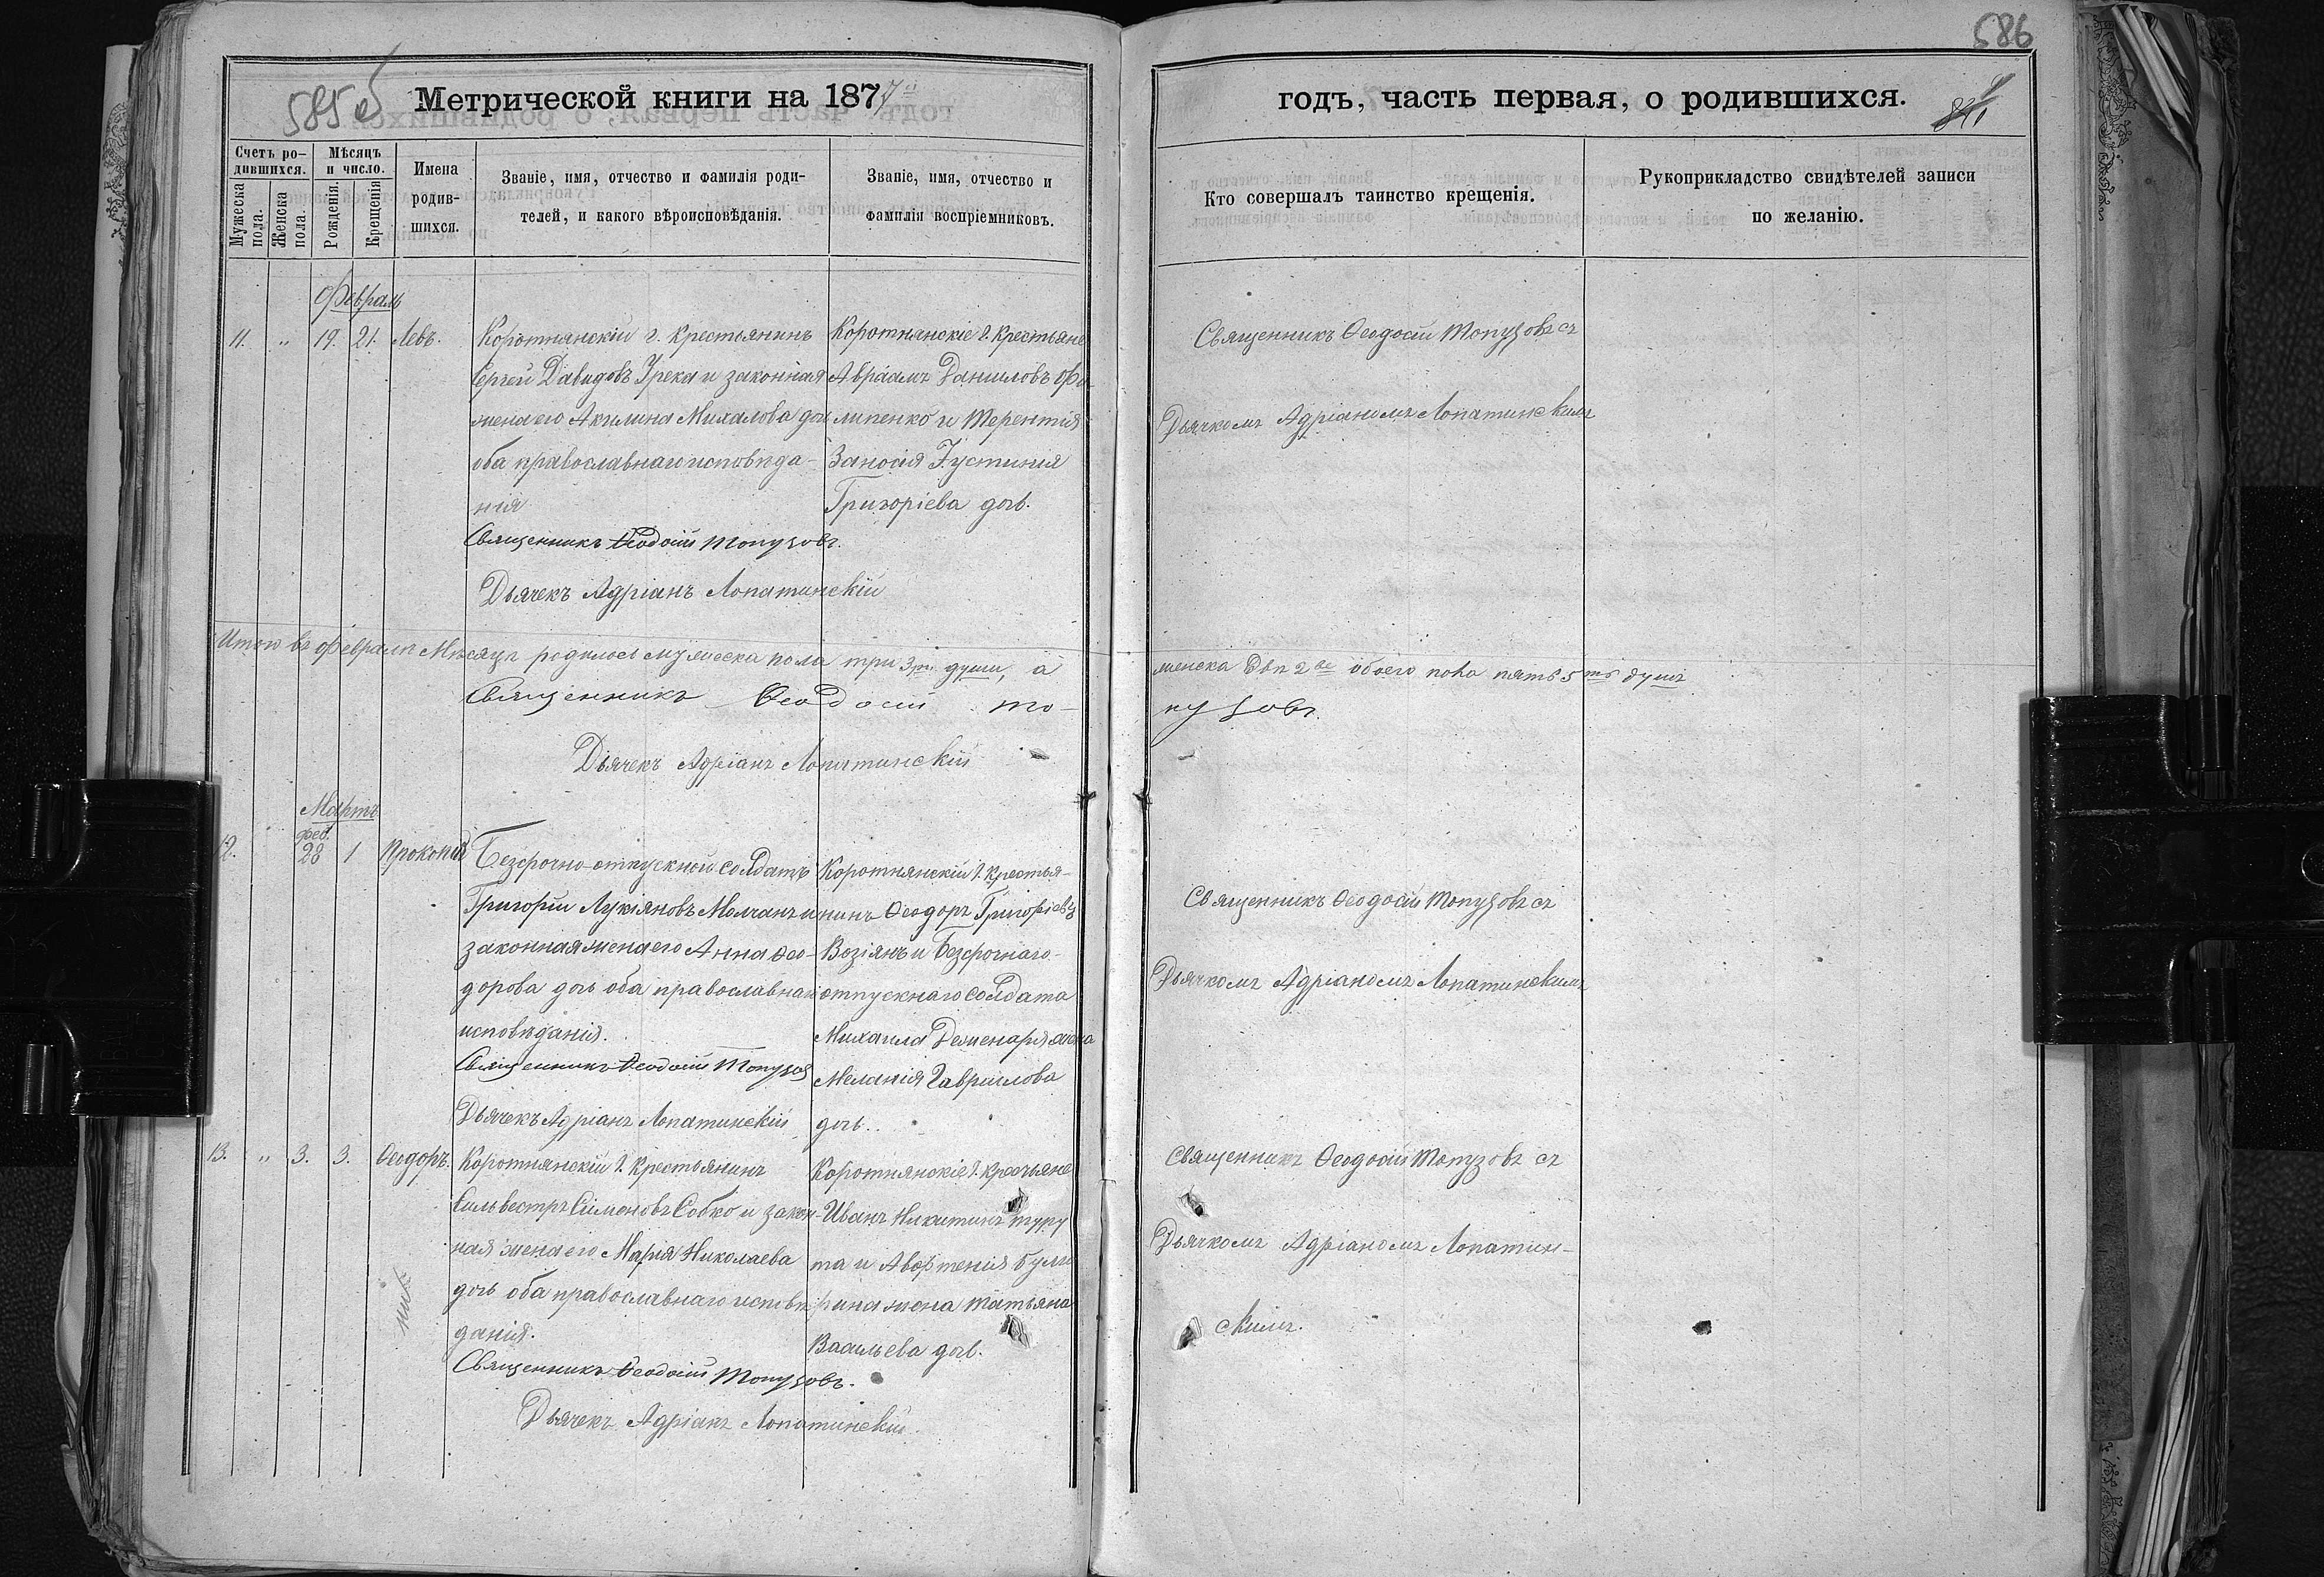 585об
Метрической книги на 1877й
Счетъ ро-
дившихся.
Мужеска
пола.
Женска
пола.
Мѣсяцъ
и число.
Рожденія.
Крещенія
Имена
родив-
шихся.
Званіе, имя, отчество и фамилія роди-
телей, и какого вѣроисповѣданія.
Званіе, имя, отчество и
фамилія воспріемниковъ.
Февраль
11. „ 19. 21. Левъ.
Коротнянскій г. крестьянинъ
Сергей Давидовъ Грека и законная
жена его Акилина Михалова дочь
оба православнаго исповѣда-
нія
Священникъ Ѳеодосій Топузовъ.
Дьячекъ Адріанъ Лопатинскій
Коротнянскіе г. крестьяне
Авраамъ Даниловъ Фи-
липенко и Терентія
Заносія Іустинія
Григоріева дочь.
Итого въ Февралѣ Мѣсяцѣ родилось мужеска пола три 3 души, а
Священникъ Ѳеодосій То-
Дьячекъ Адріанъ Лопатинскій
Мартъ
фев.
12. 28 1 Прокопій
Безсрочно-отпускной солдатъ
Григорій Лукіяновъ Молчанъ и
законная жена его Анна Ѳео-
дорова дочь оба православнаго
исповѣданія.
Священникъ Ѳеодосій Топузов
Дьячекъ Адріанъ Лопатинскій
Коротнянскій г. крестья-
нинъ Ѳеодоръ Григоріевъ
Возіянъ и Безсрочнаго-
отпускнаго солдата
Михаила жена
Меланія Гавриилова
дочь.
13. „ 3. 3. Ѳеодоръ.
Коротнянскій г. Крестьянинъ
Сильвестръ Симоновъ Собко и закон-
ная жена его Марія Николаева
дочь оба православнаго исповѣ-
данія.
Священникъ Ѳеодосій Топузовъ.
Дьячекъ Адріанъ Лопатинскій
Коротнянскіе г. крестьяне
Иванъ Никитинъ Туру
та и
жена Татьяна
Васильева дочь.
586
годъ, часть первая, о родившихся.
Кто совершалъ таинство крещенія.
Рукоприкладство свидѣтелей записи
по желанію.
Священникъ Ѳеодосій Топузовъ съ
Дьячкомъ Адріаномъ Лопатинскимъ
женска двѣ 2ве обоего пола пять 5ть душъ
пузовъ.
Священникъ Ѳеодосій Топузовъ съ
Дьячкомъ Адріаномъ Лопатинскимъ
Священникъ Ѳеодосій Топузовъ съ
Дьячкомъ Адріаномъ Лопатин-
скимъ.